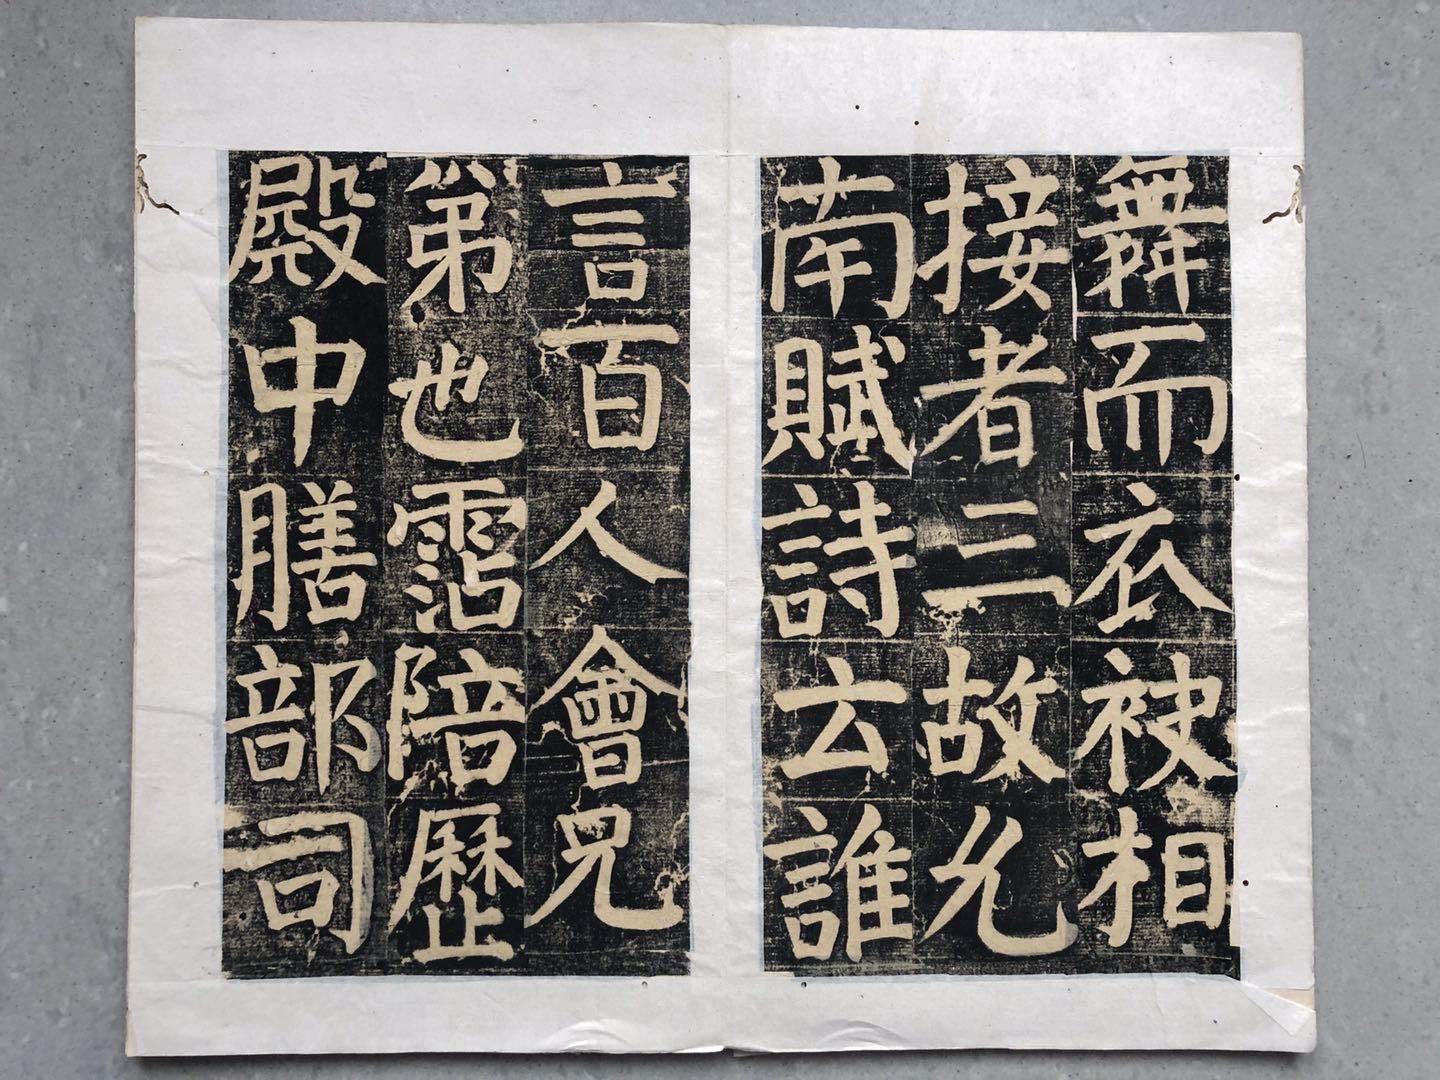 舞而衣袂相
接者三故允
南賦詩云誰
言百人會兄
弟也霑陪歷
殿中膳部司